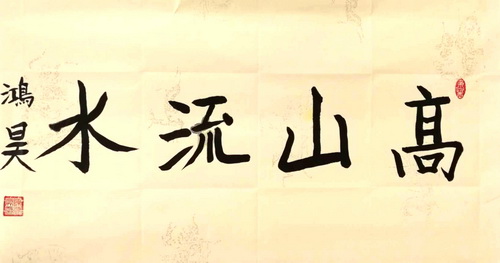 高山流水
鴻昊